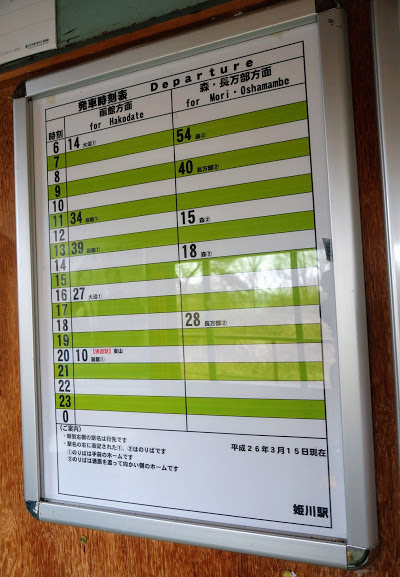 発車時刻表 Departure
時刻 函館方面 森・長万部方面
for Hakodate for Mori・Oshamambe
6 14 大沼① 54 森②
7
8 40 長万部②
9
10
11 34 函館① 15 森②
12
13 39 函館① 18 森②
14
15
16 27 大沼①
17
18 28 長万部②
19
20 10 【通過駅】東山
函館①
21
22
23
0
(ご案内)
・時刻右側の駅名は行先です
・駅名の右に表記された①、②はのりばです
①のりばは手前のホームです
②のりばは通路を渡って向かい側のホームです
平成26年3月15日現在
姫川駅